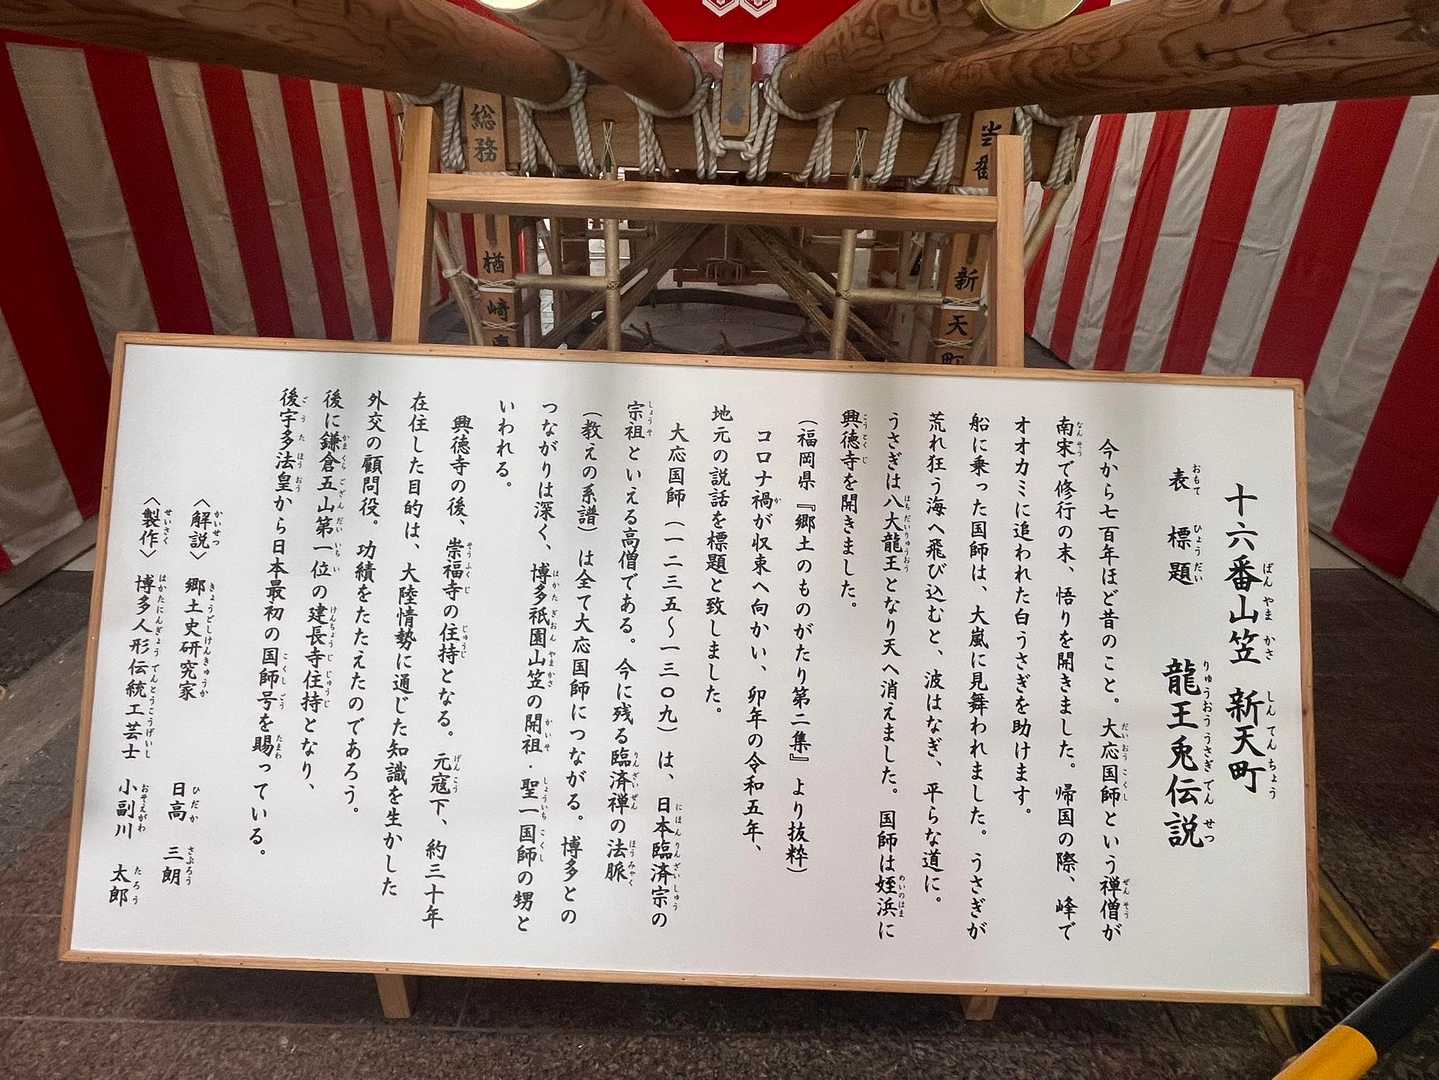 総務
当番
楢崎
新天町
十六番山笠 新天町
表 標題 龍王兎伝説
今から七百年ほど昔のこと。大応国師という禅僧が
南宋で修行の末、悟りを開きました。帰国の際、峰で
オオカミに追われた白うさぎを助けます。
船に乗った国師は、大嵐に見舞われました。うさぎが
荒れ狂う海へ飛び込むと、波はなぎ、平らな道に。
うさぎは八大龍王となり天へ消えました。国師は姪浜に
興徳寺を開きました。
（福岡県『郷土のものがたり第二集』より抜粋）
コロナ禍が収束へ向かい、卯年の令和五年、
地元の説話を標題と致しました。
大応国師（一二三五～一三〇九）は、日本臨済宗の
宗祖といえる高僧である。今に残る臨済禅の法脈
（教えの系譜）は全て大応国師につながる。博多との
つながりは深く、博多祇園山笠の開祖・聖一国師の甥と
いわれる。
興徳寺の後、崇福寺の住持となる。元寇下、約三十年
在住した目的は、大陸情勢に通じた知識を生かした
外交の顧問役。功績をたたえたのであろう。
後に鎌倉五山第一位の建長寺住持となり、
後宇多法皇から日本最初の国師号を賜っている。
〈解説〉 郷土史研究家 日高 三朗
〈製作〉 博多人形伝統工芸士 小副川 太郎